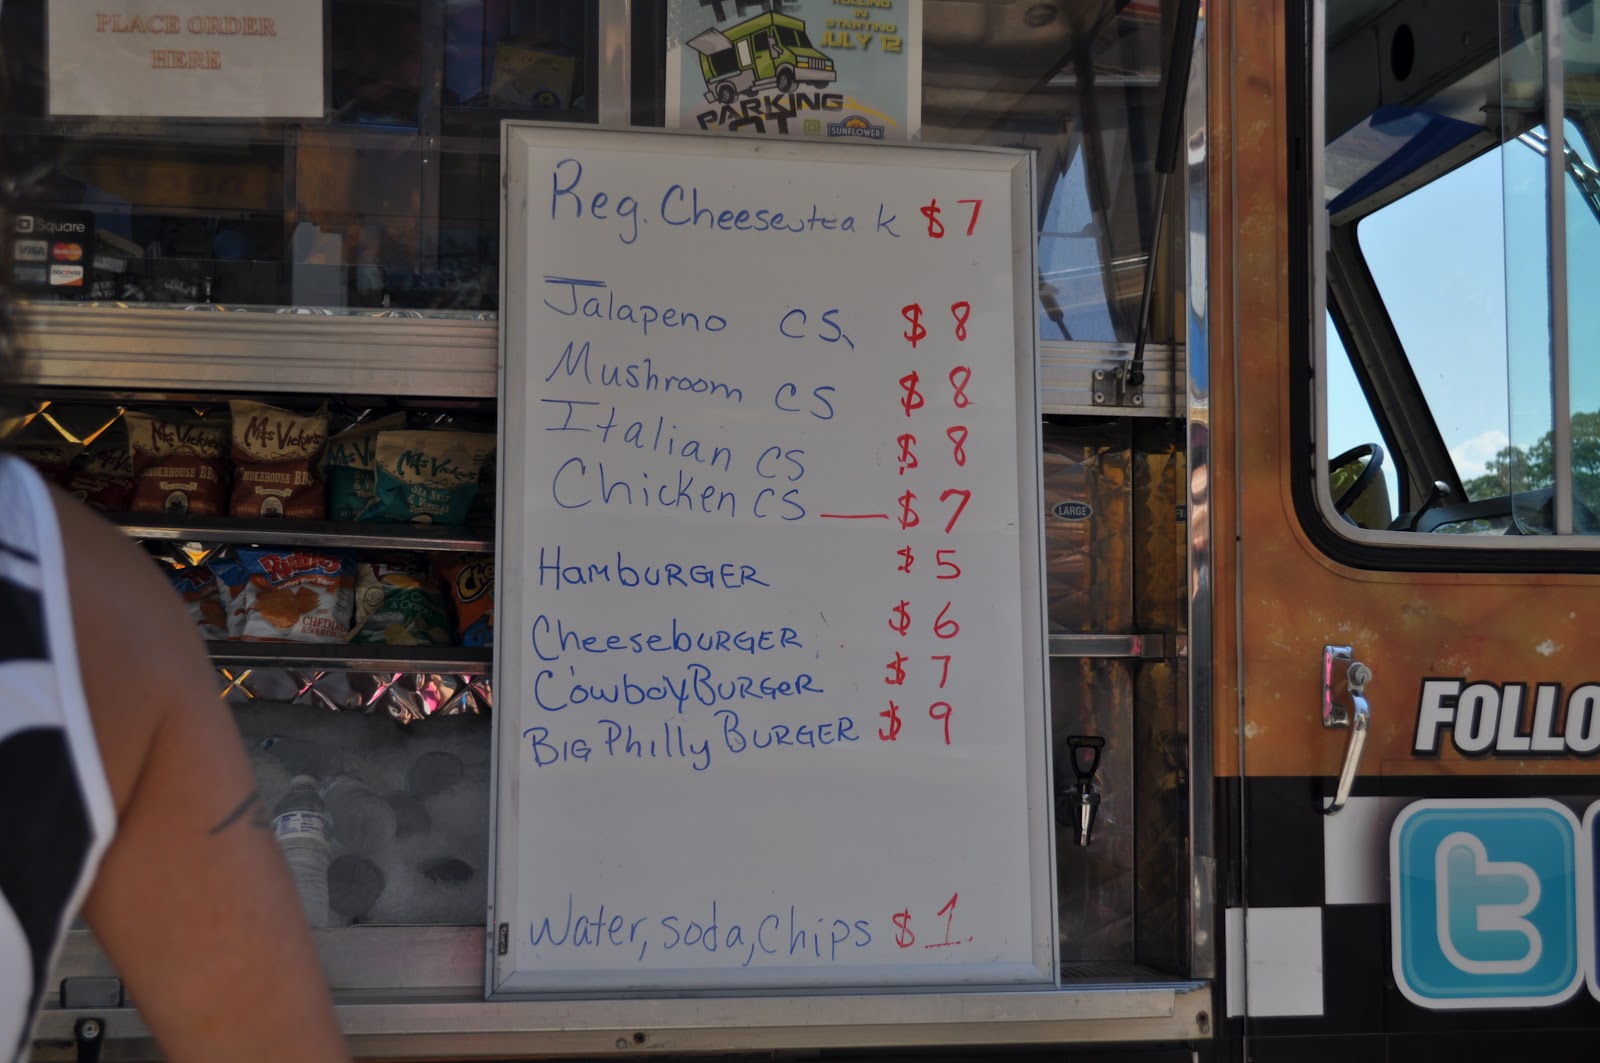 PLACE ORDER
HERE
THE
PARKING
ROLLING
IN
STARTING
JULY 12
SUNFLOWER
Square
VISA MasterCard
DISCOVER
Reg. Cheesesteak $7
Jalapeno CS. $8
Mushroom CS $8
Italian CS $8
Chicken CS — $7
HamBURGER $5
CheeseBURGER $6
CowboyBURGER $7
BIG Philly BURGER $9
Water, soda, chips $1.
Miss Vickie's
SMOKEHOUSE BBQ
Miss Vickie's
SMOKEHOUSE BBQ
Miss Vickie's
SEA SALT
& VINEGAR
Ruffles
CHEDDAR
& SOUR CREAM
LARGE
FOLLO
t